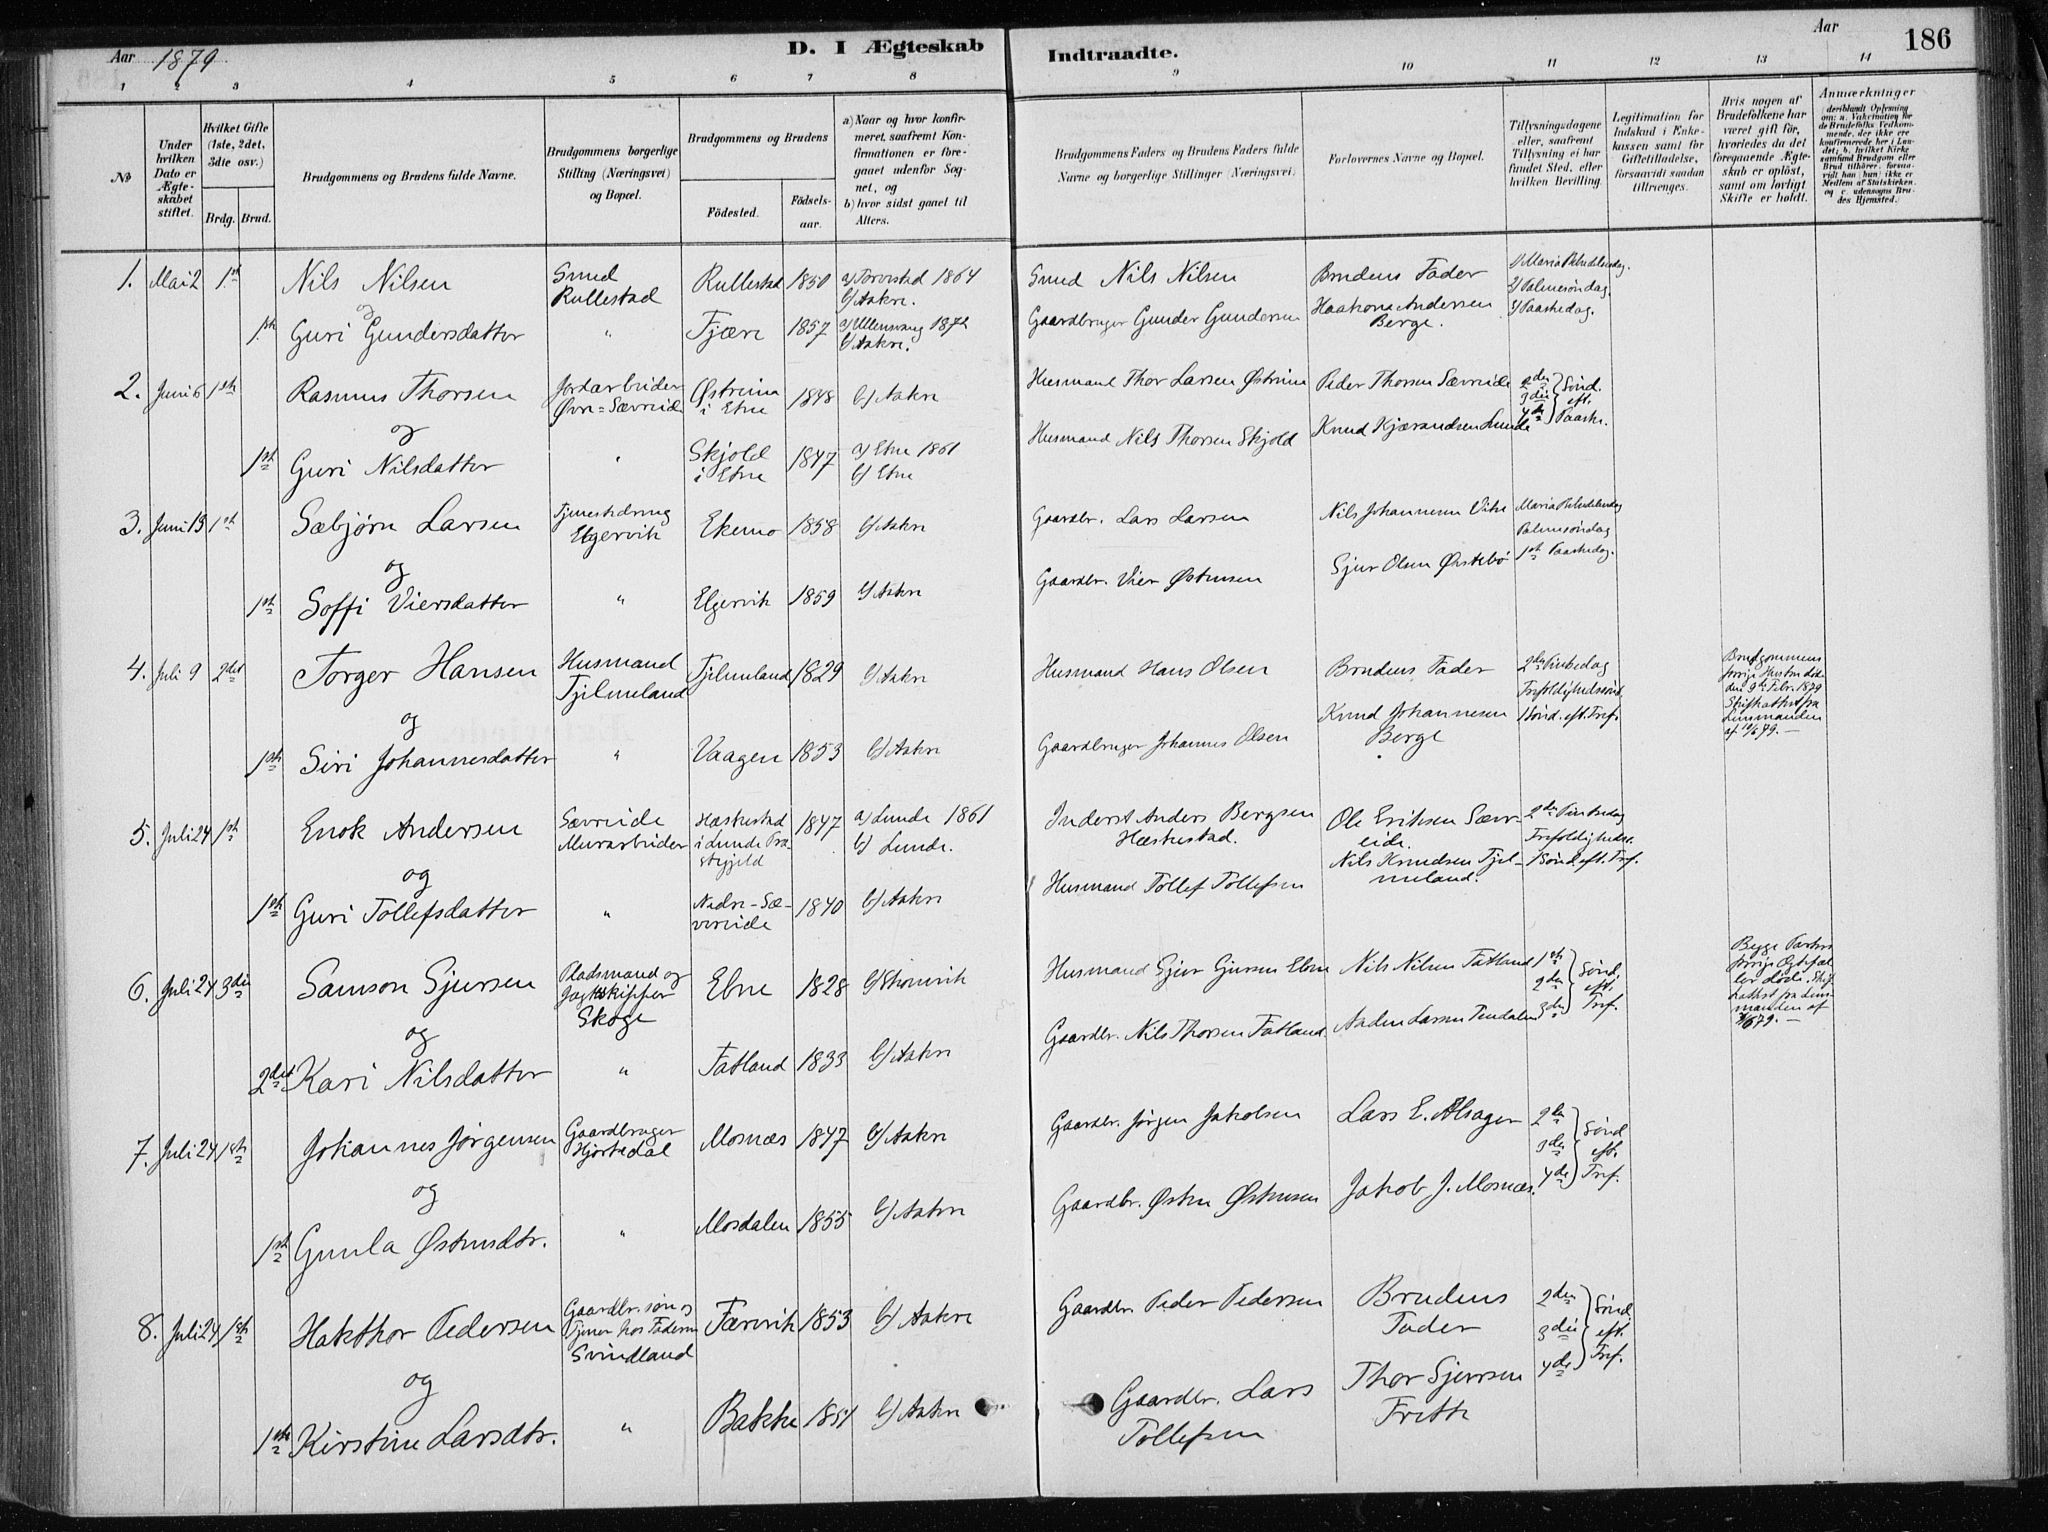 Aar 1879
D. I Ægteskab
Indtraadte.
Aar
186
1 2 3 4 5 6 7 8 9 10 11 12 13 14
No
Under hvilken Dato er Ægteskabet stiftet.
Hvilket Gifte (1ste, 2det, 3die osv.)
Brdg. Brud.
Brudgommens og Brudens fulde Navne.
Brudgommens borgerlige Stilling (Næringsvei) og Bopæl.
Brudgommens og Brudens
Födested.
Födselsaar.
a) Naar og hvor konfirmeret, saafremt Konfirmationen er foregaaet udenfor Sognet, og
b) hvor sidst gaaet til Alters.
Brudgommens Faders og Brudens Faders fulde Navne og borgerlige Stillinger (Næringsvei).
Forlovernes Navne og Bopæl.
Tillysningsdagene eller, saafremt Tillysning ei har fundet Sted, efter hvilken Bevilling.
Legitimation for Indskud i Enkekassen samt for Giftetilladelse, forsaavidt saadan tiltrænges.
Hvis nogen af Brudefolkene har været gift för, hvorledes da det foregaaende Ægteskab er oplöst, samt om lovligt Skifte er holdt.
Anmærkninger
1. Mai 2 1ste Nils Nilsen Smed Rullestad Rullestad 1850 a) 1864 b) Aakre. Smed Nils Nilsen Brudens Fader 1) Maria Bebudelsesdag.
og
2) Palmesøndag.
1ste Guri Gundersdatter " Fjære 1857 a) Ullensvang 1872 b) Aakre. Gaardbruger Gunder Gundersen Haakon Andersen Berge. 3) Paaskedag.
2. Juni 6 1ste Rasmus Thorsen Jordarbeider Øvre-Sævreide Østreim i Etne 1848 b) Aakre Husmand Thor Larsen Østreim Peder Thorsen Sævreide 2den 3die 4de Sønd. eft. Paaske.
og
1ste Guri Nilsdatter " Skjold i Etne 1847 a) Etne 1861 b) Etne Husmand Nils Thorsen Skjold Knud Kjærandsen Lunde
3. Juni 13 1ste Sæbjørn Larsen Tjenestedreng Elgervik Ekemo 1858 b) Aakre Gaardbr. Lars Larsen Nils Johannesen Vike Maria Bebudelsesdag
og
Palmesøndag
1ste Soffi Viersdatter " Elgervik 1859 b) Aakre Gaardbr. Vier Østensen Sjur Olsen Østebø 1ste Paaskedag.
4. Juli 9 2det Torger Hansen Husmand Fjelmeland Fjelmeland 1829 b) Aakre Husmand Hans Olsen Brudens Fader 2den Pintsedag Brudgommens forrige Hustru døde den 9de Febr. 1879 Skifteattest fra Lensmanden af 10/6 79.
og
Trefoldighedssønd.
1ste Siri Johannesdatter " Vaagen 1853 b) Aakre Gaardbruger Johannes Olsen Knud Johannesen Berge 1 Sønd. eft. Tref.
5. Juli 24 1ste Enok Andersen Sævreide Murarbeider Hæskestad i Lunde Præstegjeld 1847 a) Lunde 1861 b) Lunde. Inderst Anders Bergsen Hæskestad. Ole Eriksen Sævreide. 2den Pintsedag
og
Trefoldighedss.
1ste Guri Tollefsdatter " Nedre-Sævreide 1840 b) Aakre Husmand Tollef Tollefsen Nils Knudsen Fjelmeland. 1 Sønd. eft. Tref.
6. Juli 24 3die Samson Sjursen Pladsmand og Jagtskipper Skoge Ebne 1828 b) Skonevik Husmand Sjur Sjursen Ebne Nils Nilsen Fatland 1ste 2den 3die Sønd. eft. Tref. Begge Parters forrige Ægtefæller døde. Skifteattest fra Lensmanden af 679.
og
2det Kari Nilsdatter " Fatland 1833 b) Aakre Gaardbr. Nils Thorsen Fatland. Aaden Larsen Tindalen
7. Juli 24 1ste Johannes Jørgensen Gaardbruger Hjortedal Mosnæs 1847 b) Aakre Gaardbr. Jørgen Jakobsen Lars E. Alsager 2den 3die 4de Sønd. eft. Tref.
og
1ste Gunla Østensdtr. " Mosdalen 1855 b) Aakre Gaardbr. Østen Østensen Jakob J. Mosnæs.
8. Juli 24 1ste Hakthor Pedersen Gaardbr. søn og Tjener hos Faderen Svindland Færevik 1853 b) Aakre Gaardbr. Peder Pedersen Brudens Fader 2den 3die 4de Sønd. eft. Tref.
og
1ste Kirstine Larsdtr. " Bakke 1851 b) Aakre Gaardbr. Lars Tollefsen Thor Sjursen Frette